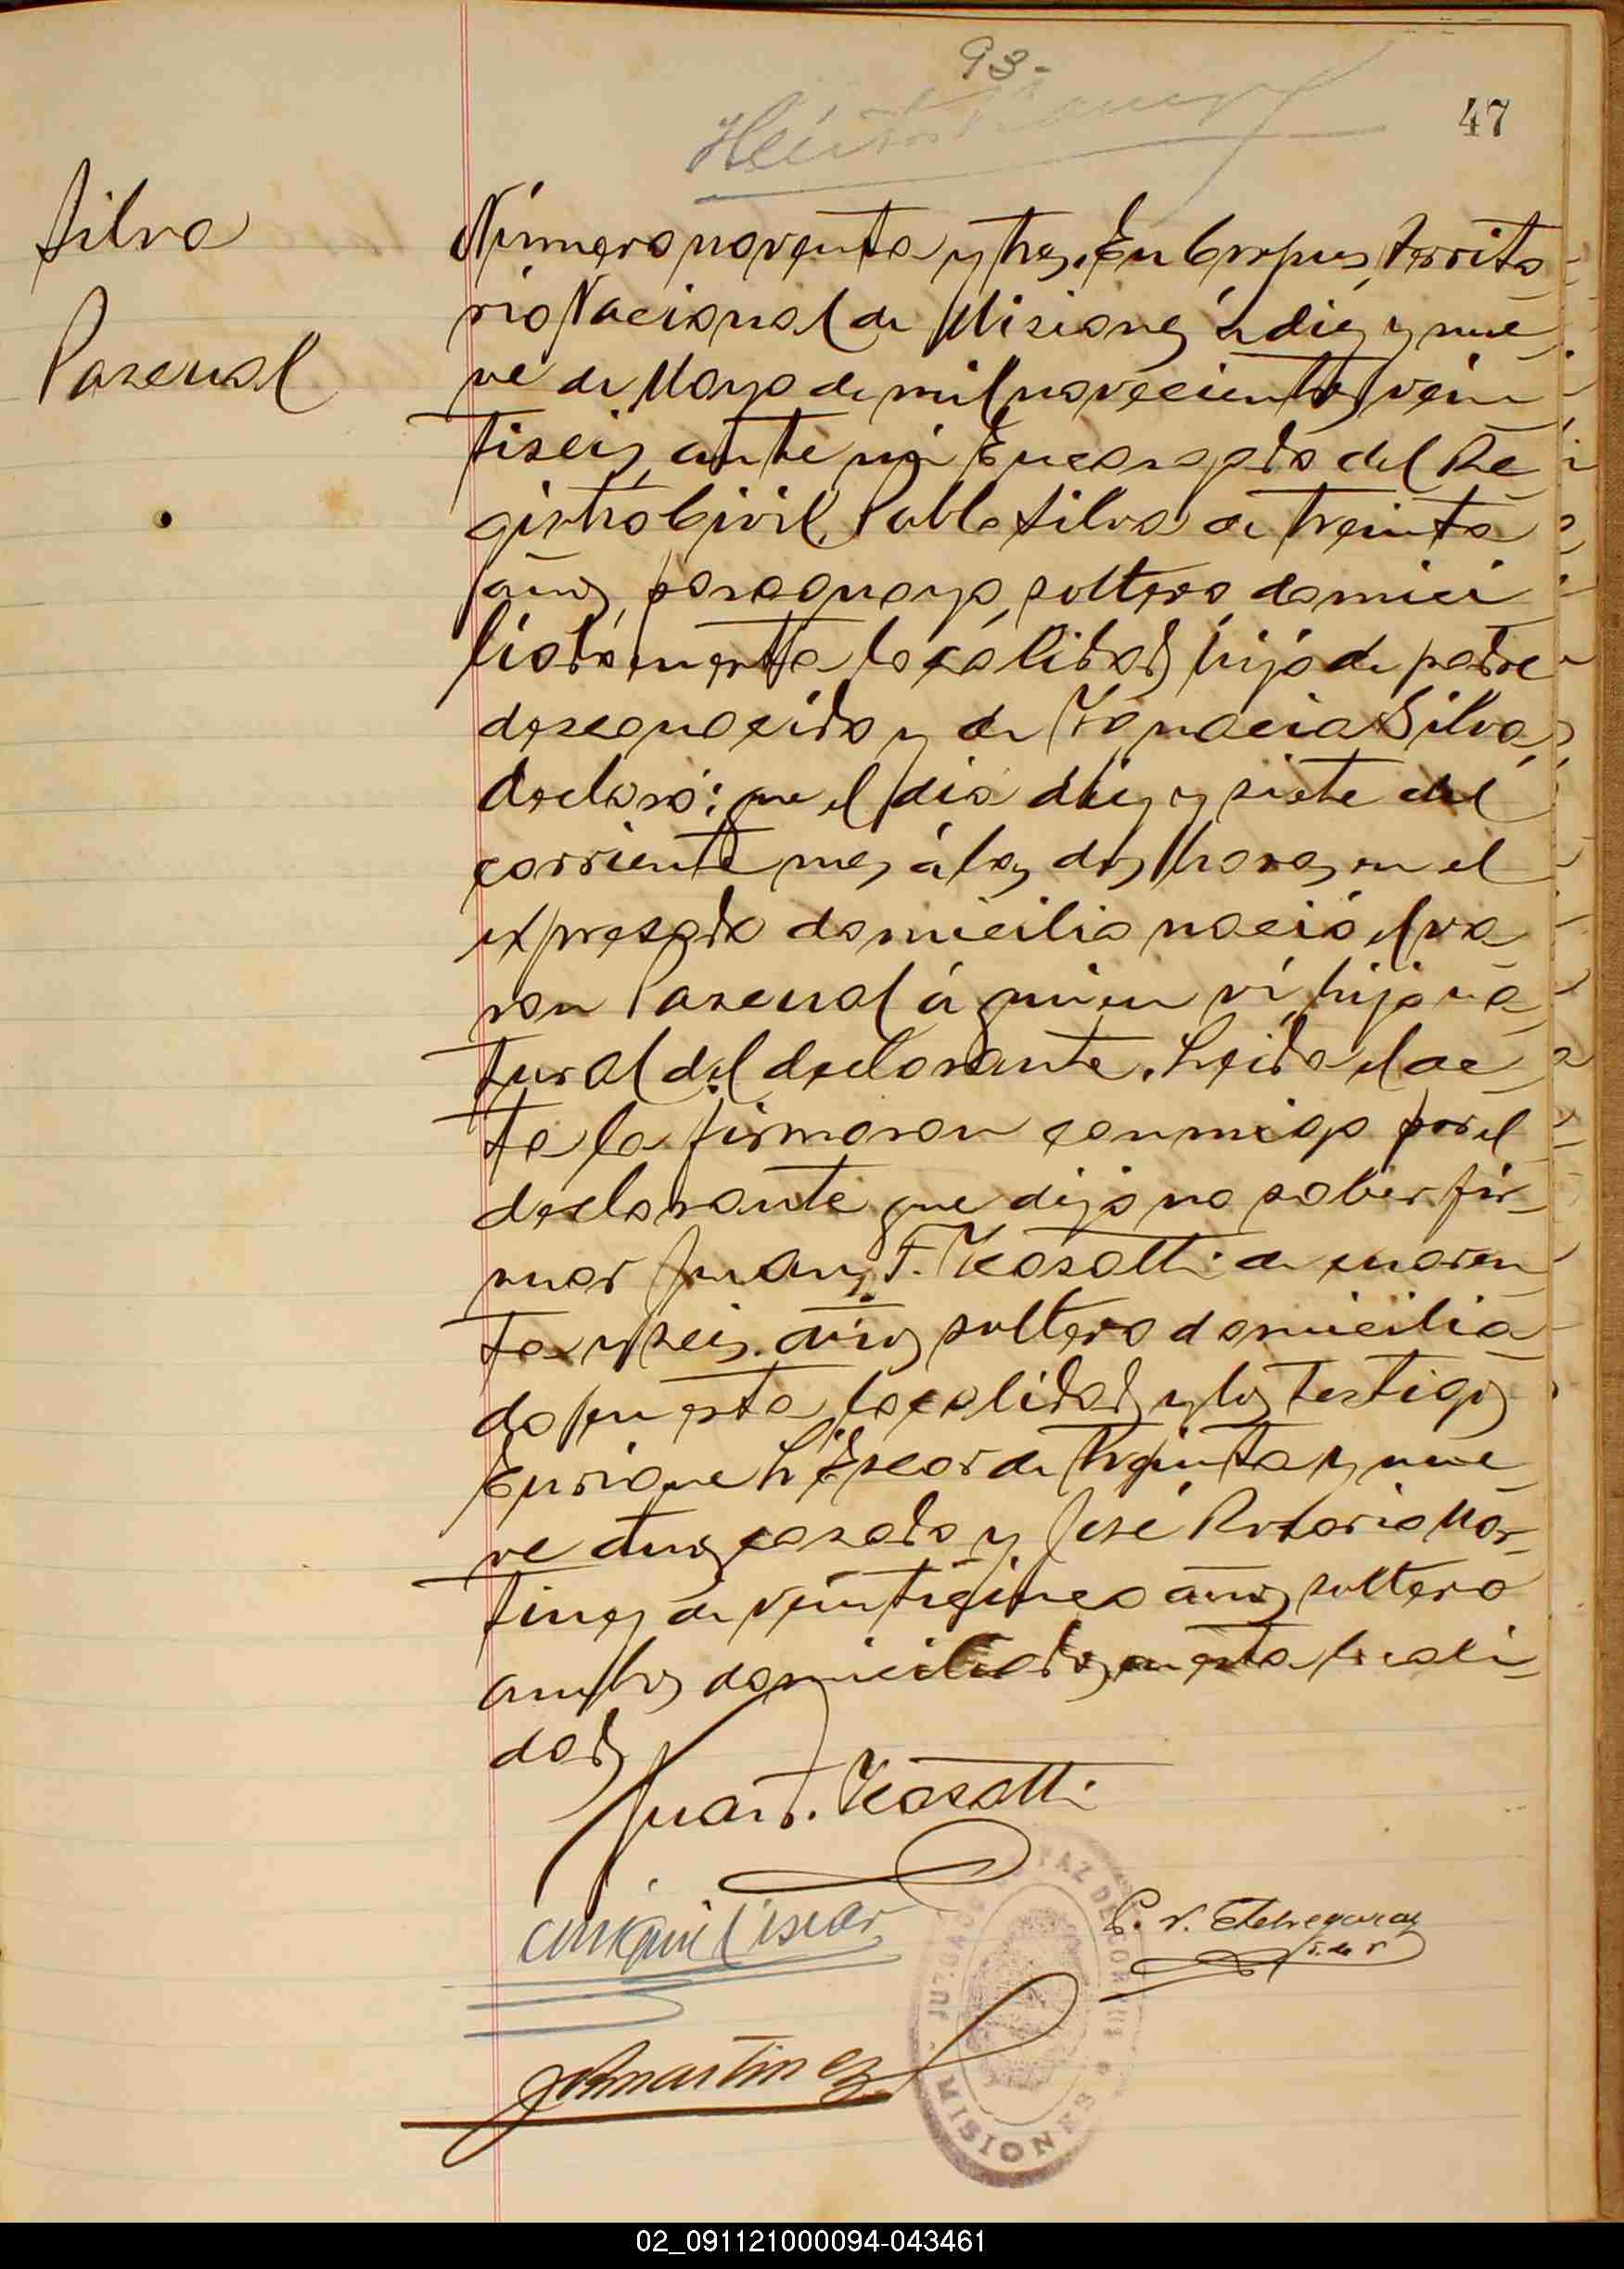 93-
47
Silva
Pascual
Número noventa y tres. En Corpus, Territo
rio Nacional de Misiones, á diez y nue
ve de Mayo de mil novecientos vein
tiseis, ante mi Encargado del Re
gistro Civil, Pablo Silva de treinta
años, paraguayo, soltero, domici
liado en esta localidad, hijo de padre
desconocido y de Ignacia Silva,
declaró: que el dia diez y siete del
corriente mes, á las dos horas, en el
expresado domicilio nació el va
ron Pascual á quien ví, hijo na
tural del declarante. Leida el ac
ta la firmaron conmigo por el
declarante que dijo no saber fir-
mar Juan F. Kasatti de cuaren
ta y seis años, soltero domicilia
do en esta localidad, y los testigos
Enrique L. Escar de treinta y nue
ve años casado y José Rosario Mar-
tinez de veinticinco años, soltero
ambos domiciliados en esta locali
dad
Juan F. Kasatti
Enrique L Escar
E. V. Etchegaray
J R Martinez
JUZGADO DE PAZ DE CORPUS
MISIONES
02_091121000094-043461